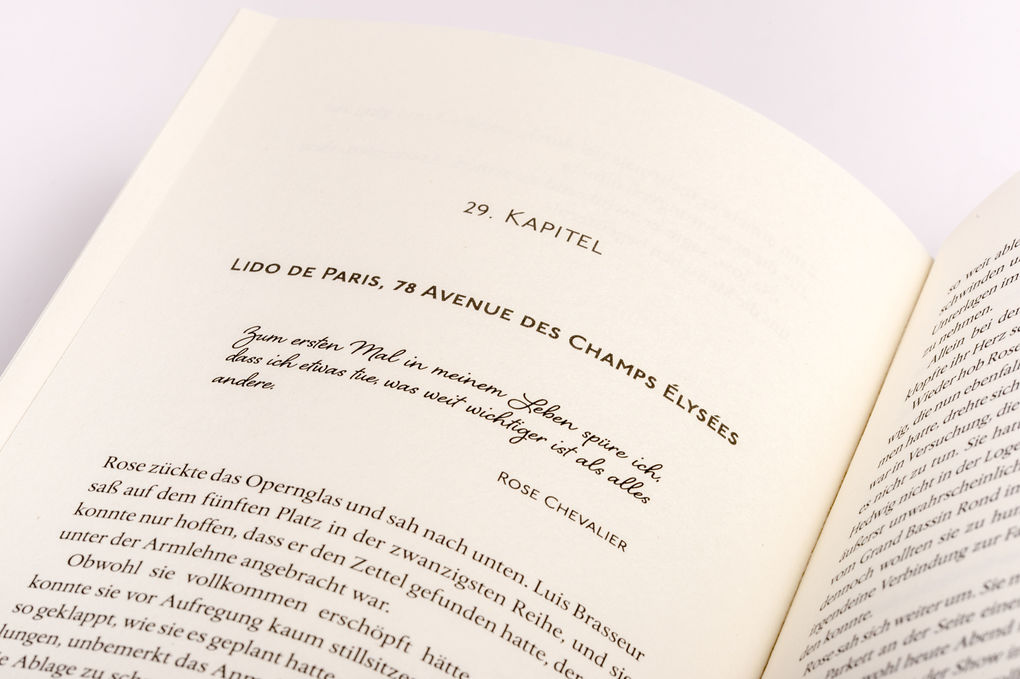 29. KAPITEL
LIDO DE PARIS, 78 AVENUE DES CHAMPS ÉLYSÉES
Zum ersten Mal in meinem Leben spüre ich,
dass ich etwas tue, was weit wichtiger ist als alles
andere.
ROSE CHEVALIER
Rose zückte das Opernglas und sah nach unten. Luis Brasseur
saß auf dem fünften Platz in der zwanzigsten Reihe, und sie
konnte nur hoffen, dass er den Zettel gefunden hatte, der
unter der Armlehne angebracht war.
Obwohl sie vollkommen erschöpft hätte
konnte sie vor Aufregung kaum stillsitze
so geklappt, wie sie es geplant hatte
lungen, unbemerkt das Anm
Ablage zu
so weit
schwinden
Unterlagen im
zu nehmen.
Allein bei der
klopfte ihr Herz
Wieder hob Rose
wig, die nun ebenfall
men hatte, drehte sich
war in Versuchung, die
es nicht zu tun. Sie hat
Hedwig nicht in der Loge
äußerst unwahrscheinlich
vom Grand Bassin Rond in
dennoch wollten sie zu hun
irgendeine Verbindung zur Fa
den konnte.
Rose sah sich weiter um. Sie
Parkett an der Seite eine
wohl heute Abend
der Show in